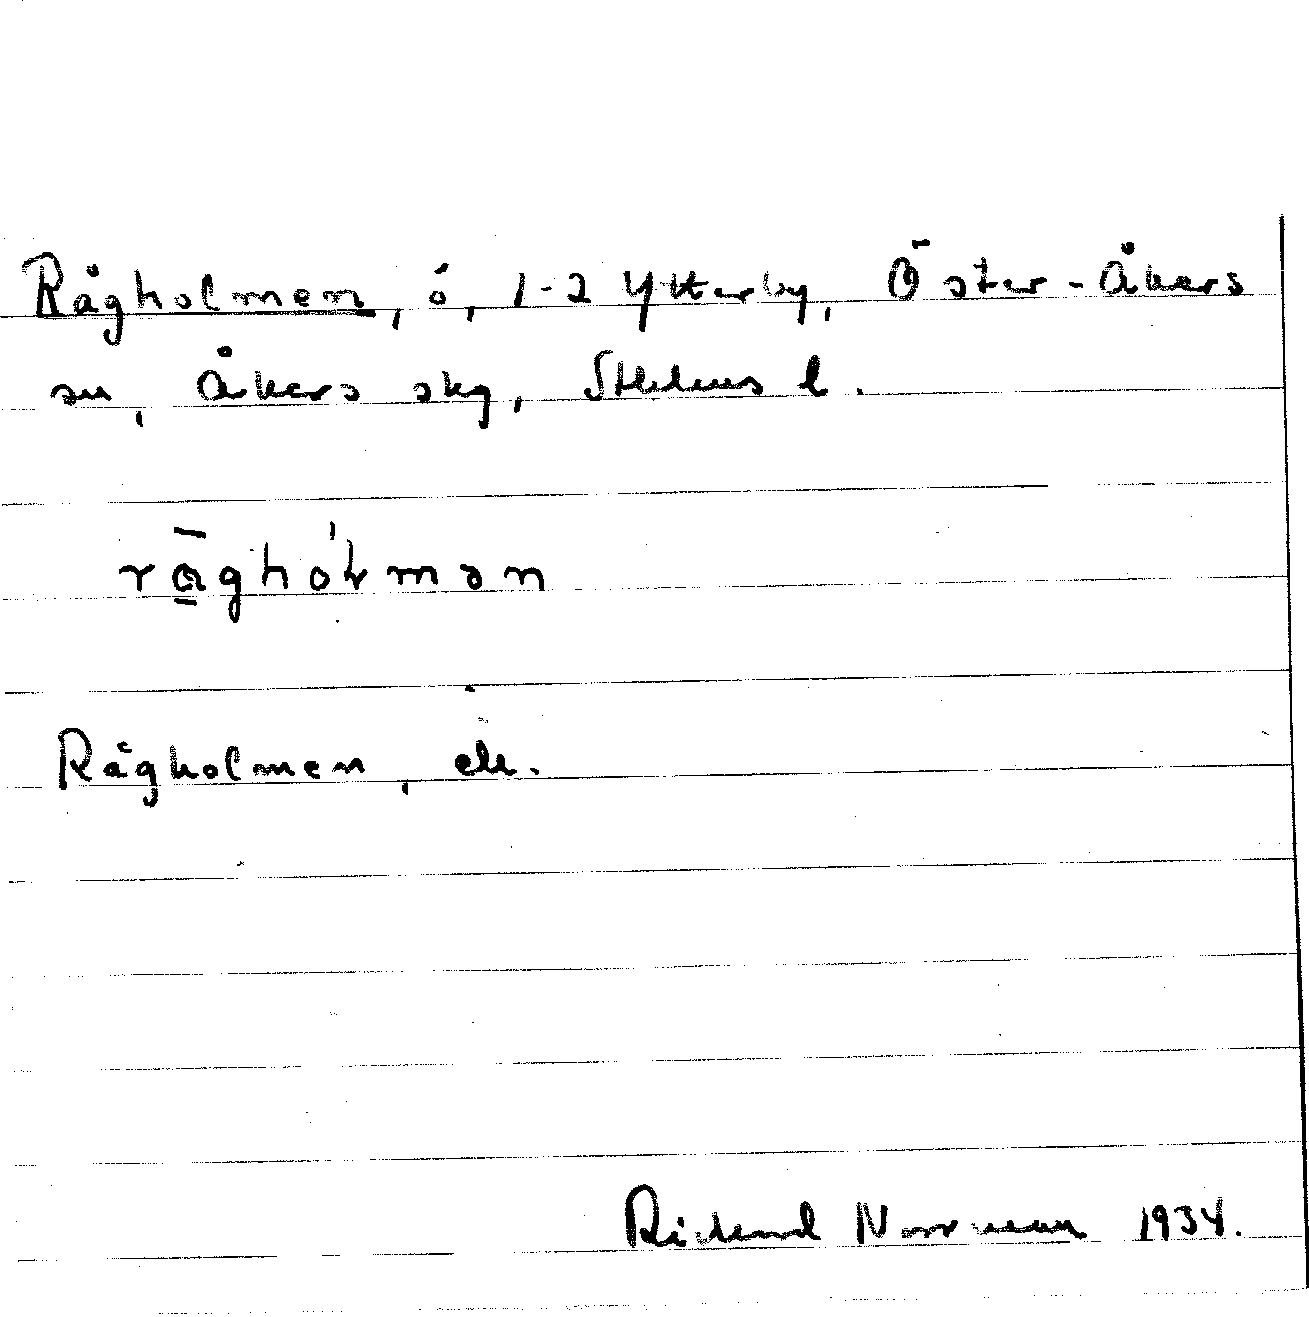 Rågholmen, ö, 1-2 Ytterby, Öster-Åkers
sn, Åkers skg, Sthlms l.
rāghóɫmən
Rågholmen, ek.
Rickard Norrman 1934.